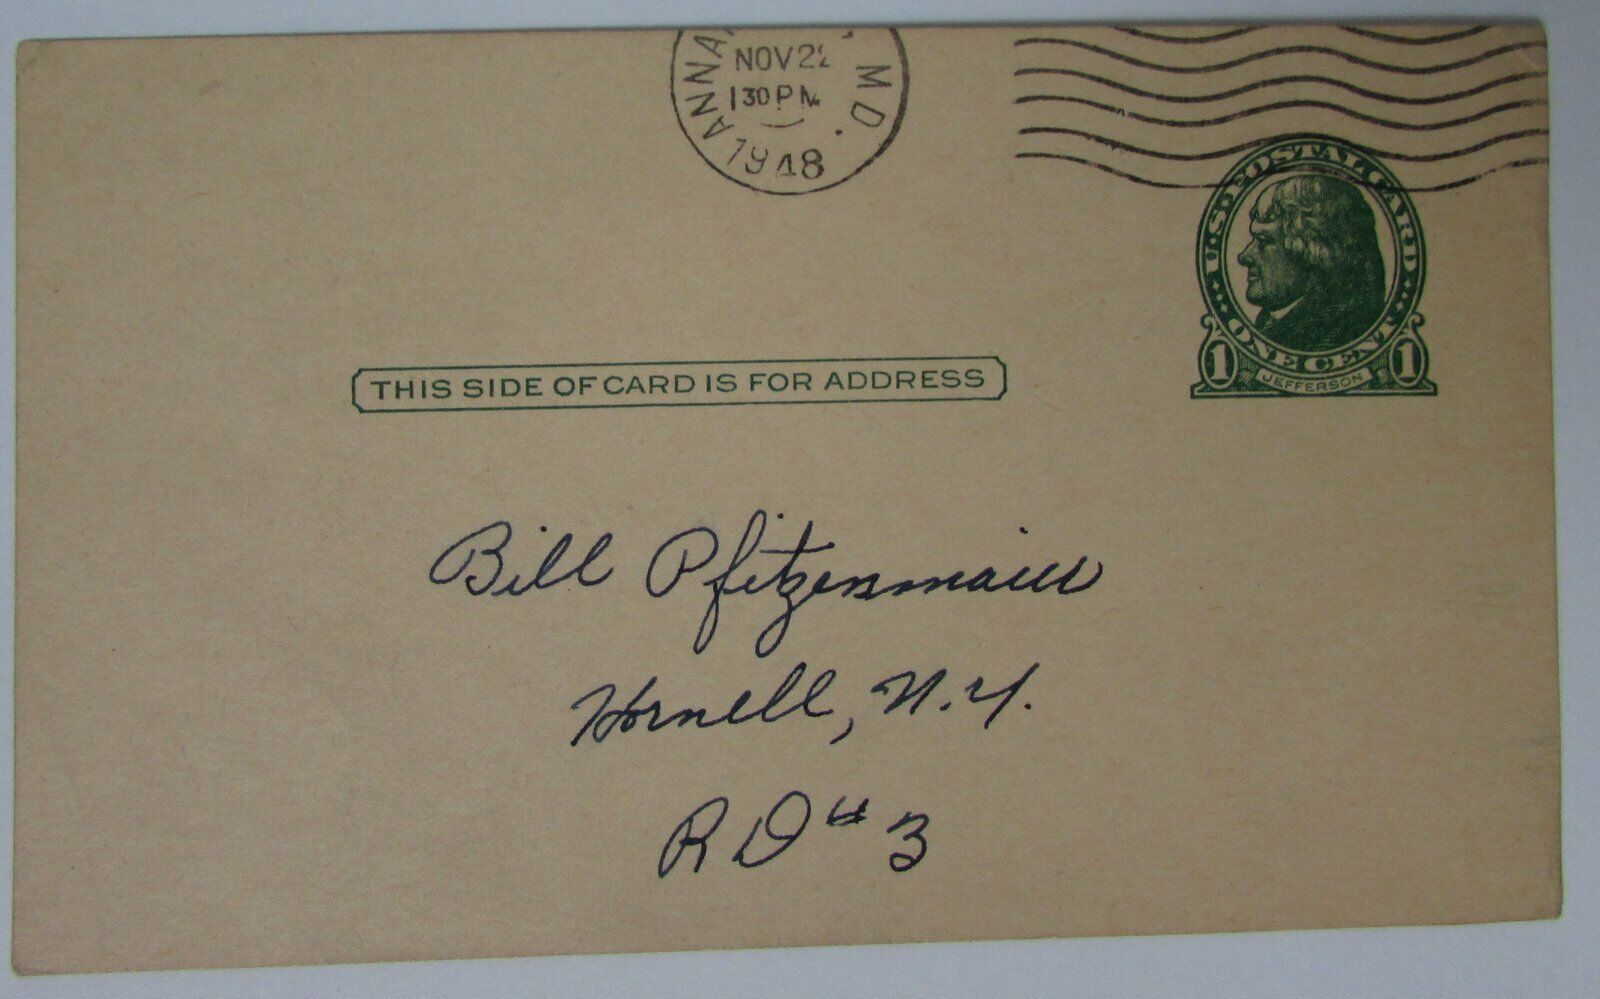 ANNA
NOV 22
1 30 PM
MD.
1948
U.S. POSTAL CARD
ONE CENT
1 1
JEFFERSON
THIS SIDE OF CARD IS FOR ADDRESS
Bill Pfitzenmaier
Hornell, N.Y.
RD # 3